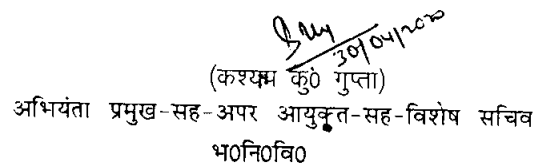 30/04/2020
(कश्यम कु0 गुप्ता)
अभियंता प्रमुख-सह-अपर आयुक्त-सह-विशेष सचिव
भ0नि0वि0